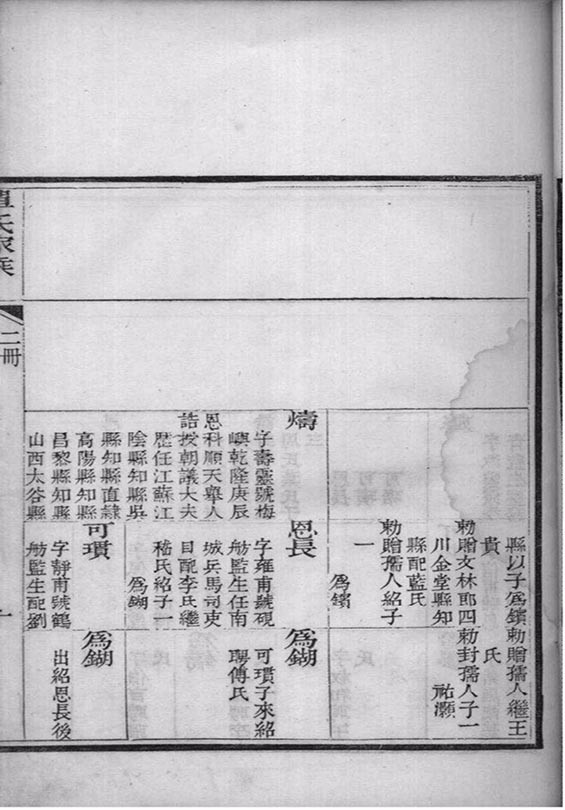 燽
字壽靈號梅
嶼乾隆庚辰
恩科順天舉人
誥授朝議大夫
歷任江蘇江
陰縣知縣吳
縣知縣直隸
高陽縣知縣
昌黎縣知縣
山西太谷縣
縣以子爲鑌
貴
勅贈文林郎四
川金堂縣知
縣配藍氏
勅贈孺人紹子
一
爲鑌
恩長
字雍甫號硯
舫監生任南
城兵馬司吏
目配李氏繼
嵇氏紹子一
爲鍸
可瓆
字靜甫號鶴
舫監生配劉
勅贈孺人繼王
氏
勅封孺人子一
祐灝
爲鍸
可瓆子來紹
聘傅氏
爲鍸
出紹恩長後
氏家族
二冊